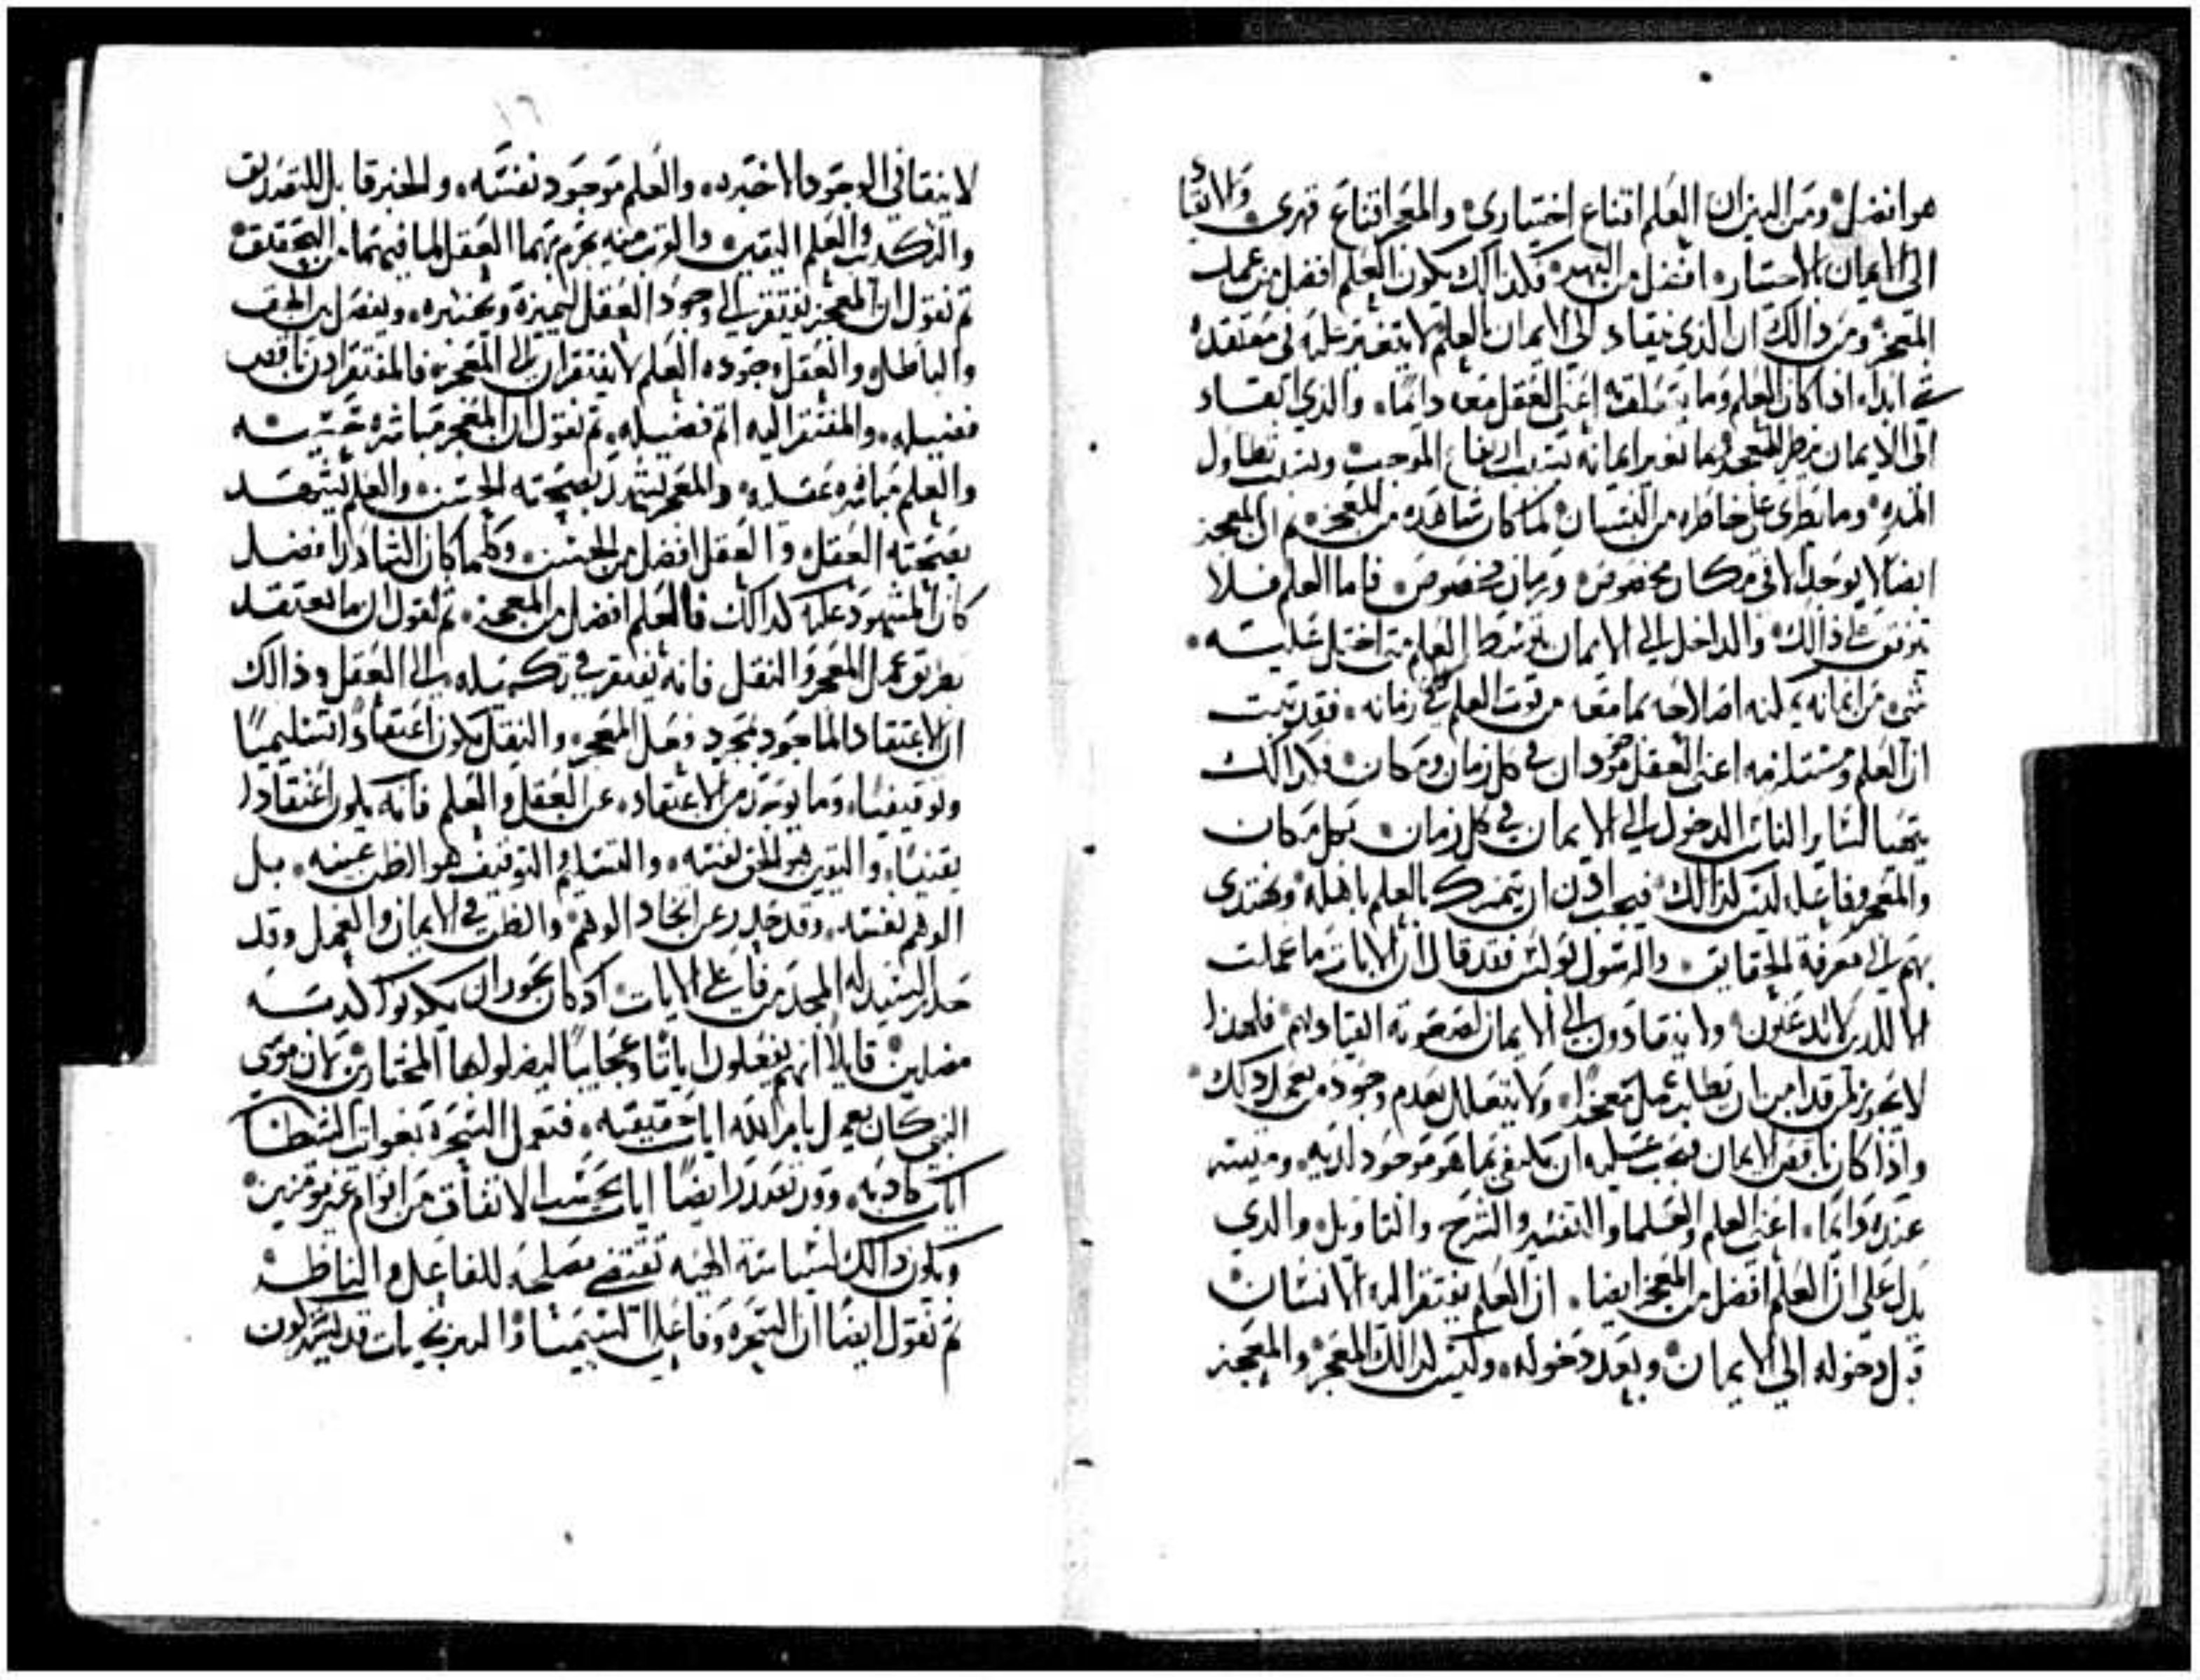 هو افضل. ومن البين ان العلم اقناع اختياري. والمعجز اقناع قهري. والانقيا
الى الايمان بالاختيار افضل من القهر. فكذالك يكون العلم افضل من عمل
المعجز. ومن ذالك ان الذي ينقاد الى الايمان بالعلم لا يتغير عليه في معتقده
شي ابدا. اذا كان العلم وما يتعلق اعني العقل معه دايما. والذي انقاد
الى الايمان المعجز ايمانه بسبب ارتفاع الموجب وبسبب تطاول
المده. وما يطرى على خاطره من النسيان لما كان شاهده من المعجز. ثم ان المعجز
ايضا لا يوجد الا في مكان مخصوص وزمان مخصوص. فاما العلم فلا
يتوقف على ذالك. والداخل الى الايمان بتوسط العلم متى اختل عليه
شي من ايمانه يمكنه اصلاحه بما معه من قوت العلم في زمانه. فقد تبت
ان العلم ومستلزمه اعني العقل موجودان في كل زمان ومكان. فكذالك
يتهيا لساير الناس الدخول الى الايمان في كل زمان وكل مكان
والمعجز وفاعله ليس كذالك. فيجب اذن ان يتمسك بالعلم باهله ويهتدى
بهم الى معرفة الحقايق. والرسول بولس فقد قال ان الايات ما عملت
الا للدين لا يدعنون. ولا ينقادون الى الايمان لصعوبة انقيادهم. فلهذا
لا يجوز ان يطلب عمل معجزا. ولا يتعلل بعدم وجوده من يعمل ذلك
واذا كان ناقص الايمان فيجب عليه ان يكتفي بما هو موجود لديه. وميسر
عنده دايما. اعني العلم والعلما والتفسير والشرح والتاويل. والدي
يدل على ان العلم افضل من المعجز ايضا. ان العلم يفتقر اليه الانسان
قبل دخوله الى الايمان. وبعد دخوله. وليس كدالك المعجز. والمعجز
لا يبقا في الوجود الا خبره. والعلم موجود نفسه. والخبر قابل للتصديق
والتكديب والعلم اليقين والقريب منه يجزم بهما العقل لما فيهما من التحقيق.
ثم نقول ان المعجز يفتقر الى وجود العقل ليميزه ويختبره. ويفصل بين الحق
والباطل. والعقل وجوده العلم لا يفتقران الى المعجز. فالمفتقر اذن ناقص
فضيله. والمفتقر اليه اتم فضيله. ثم نقول ان المعجز مباشره حسيه
والعلم مباشره عقليه. والمعجز يشهد بصحته الحس. والعلم يشهد
بصحته العقل. والعقل افضل من الحس. وكلما كان الشاهد افضل
كان المشهود عليه كدالك. فالعلم افضل من المعجز. ثم نقول ان ما يعتقد
بطريق عمل المعجز والنقل فانه يفتقر في تكميله الى العقل وذالك
ان الاعتقاد الماخود بمجرد فعل المعجز. والنقل يكون اعتقادا تسليميا
وتوقيفيا. وما يوخد من الاعتقاد عن العقل والعلم فانه يكون اعتقادا
يقينيا. واليقين هو الحق نفسه. والتسليم التوقيف هو الظن عينه. بل
الوهم نفسه. وقد حدر عن اتخاد الوهم والظن في الايمان والعمل وقد
حدر السيد له المجد من فاعلي الايات. اد كان يجوز ان يكونوا كدبه
مضلين. قايلا انهم يفعلون اياتا وعجايبا ليضلوا لها المختارين لان موسى
النبي كان يعمل بامر الله ايات حقيقيه. فتعمل السحره بغوايت الشيطان
ايات كادبه. وقد تصدر ايضا ايات بحسب الاتفاق من اقوام غير مومنين
ويكون دالك لسياسة الهيه تقتضي مصلحه للفاعل والناظر
ثم نقول ايضا ان السحره وفاعلي السيميا والنيرنجيات قد يشاركون